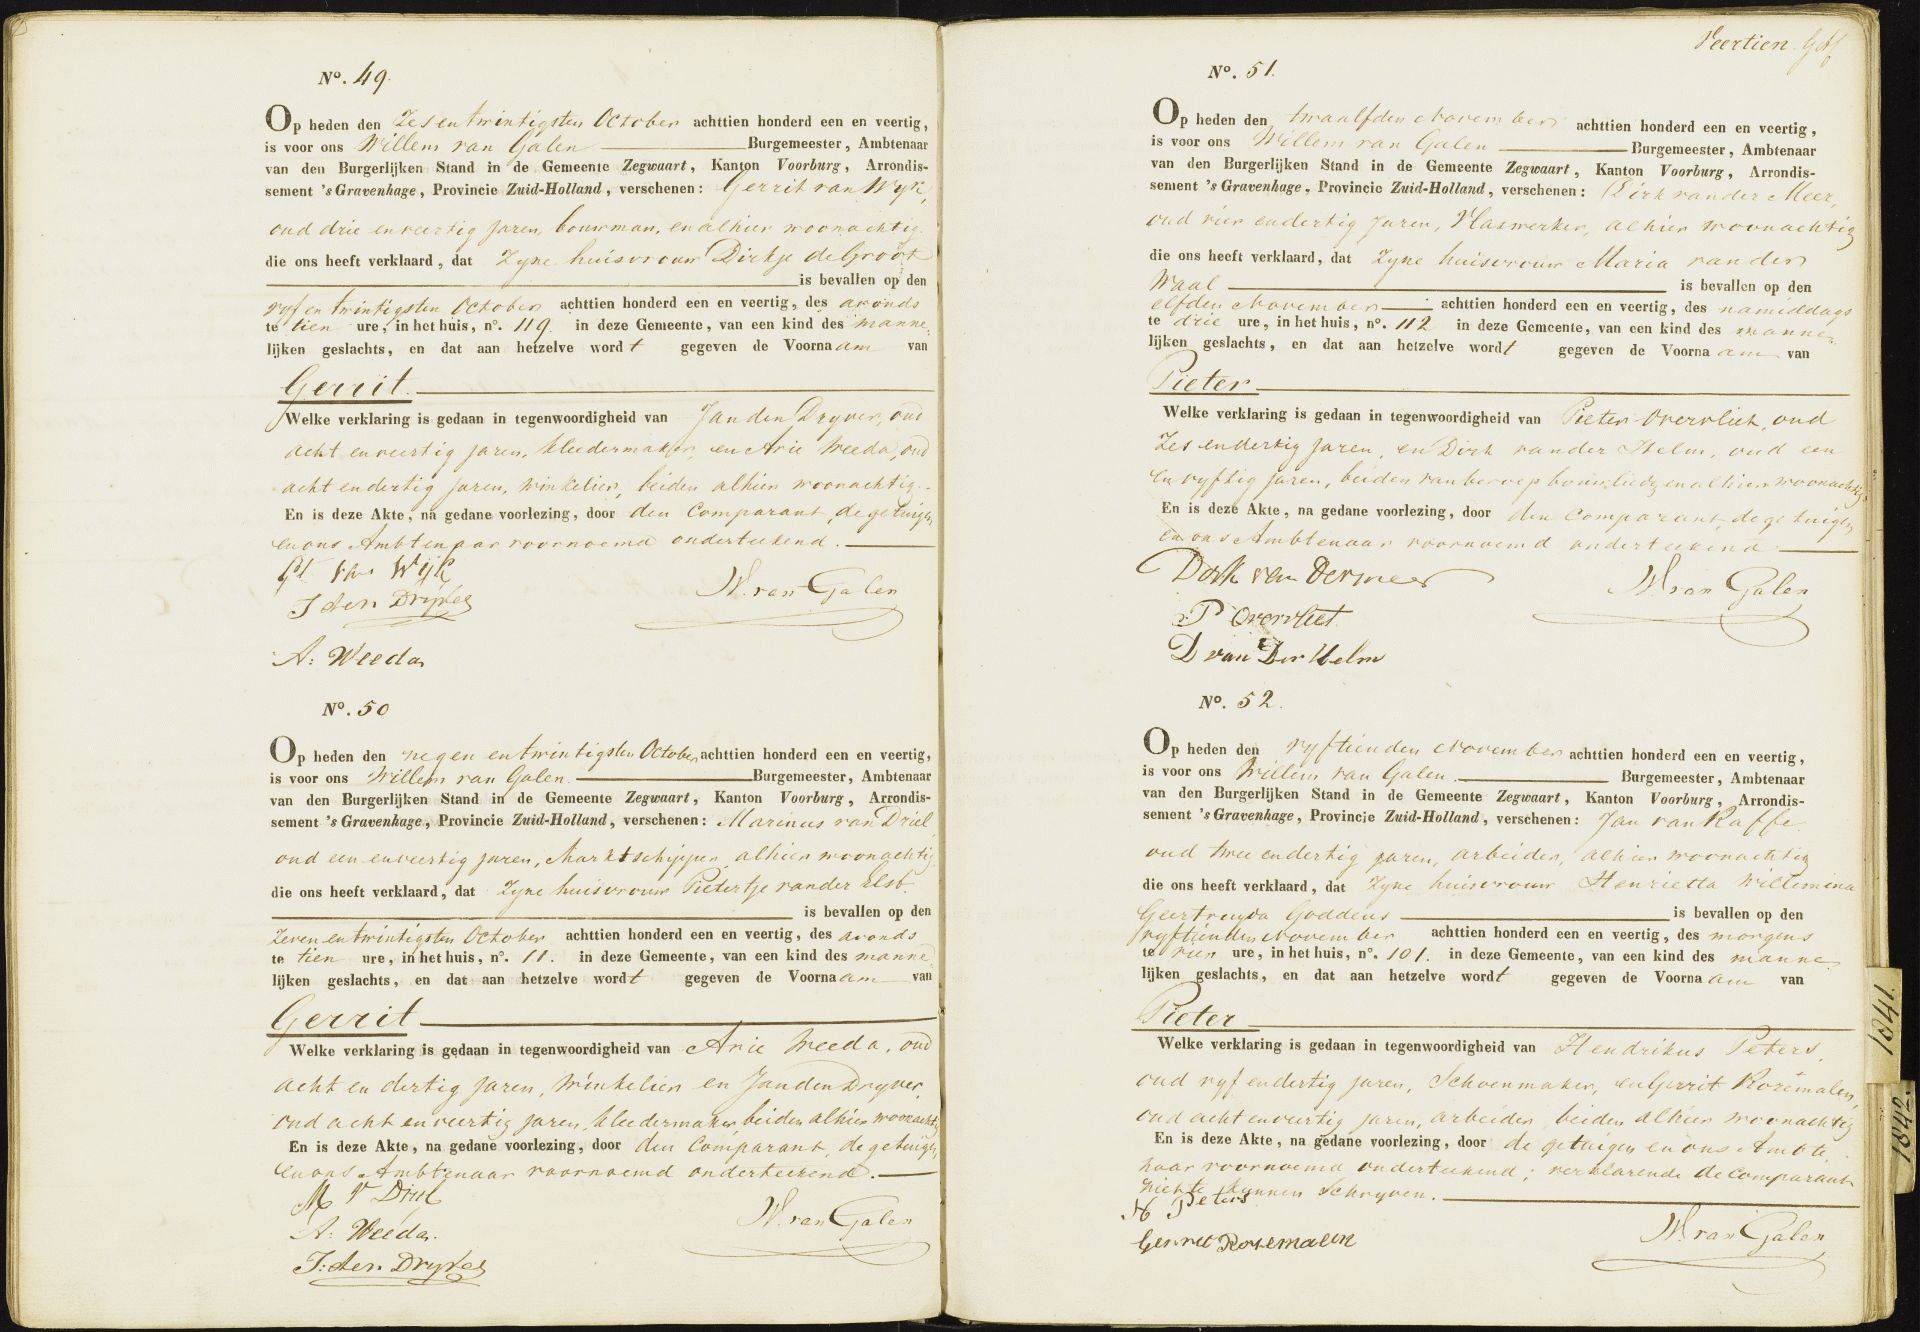 No. 49.
Op heden den Zes en twintigsten October achttien honderd een en veertig,
is voor ons Willem van Galen Burgemeester, Ambtenaar
van den Burgerlijken Stand in de Gemeente Zegwaart, Kanton Voorburg, Arrondis-
sement 's Gravenhage, Provincie Zuid-Holland, verschenen: Gerrit van Wyk,
oud drie en veertig jaren, bouwman, en alhier woonachtig
die ons heeft verklaard, dat Zyne huisvrouw Dirkje de Groot
is bevallen op den
vyf en twintigsten October achttien honderd een en veertig, des avonds
te tien ure, in het huis, no. 119. in deze Gemeente, van een kind des manne-
lijken geslachts, en dat aan hetzelve wordt gegeven de Voornaam van
Gerrit.
Welke verklaring is gedaan in tegenwoordigheid van Jan den Dryver, oud
acht en veertig jaren, kleedermaker, en Arie Weeda, oud
acht en dertig jaren, winkelier, beiden alhier woonachtig.
En is deze Akte, na gedane voorlezing, door den Comparant, de getuigen
en ons Ambtenaar voornoemd onderteekend.
Gt van Wijk
J den Dryver
W. van Galen
A: Weeda
No. 50
Op heden den negen en twintigsten October achttien honderd een en veertig,
is voor ons Willem van Galen. Burgemeester, Ambtenaar
van den Burgerlijken Stand in de Gemeente Zegwaart, Kanton Voorburg, Arrondis-
sement 's Gravenhage, Provincie Zuid-Holland, verschenen: Marinus van Driel,
oud een en veertig jaren, Marktschipper, alhier woonachtig
die ons heeft verklaard, dat Zyne huisvrouw Pietertje van der Elst.
is bevallen op den
Zeven en twintigsten October achttien honderd een en veertig, des avonds
te tien ure, in het huis, no. 11. in deze Gemeente, van een kind des manne
lijken geslachts, en dat aan hetzelve wordt gegeven de Voornaam van
Gerrit
Welke verklaring is gedaan in tegenwoordigheid van Arie Weeda, oud
acht en dertig jaren, Winkelier en Jan den Dryver,
oud acht en veertig jaren, kleedermaker, beiden alhier woonachtig
En is deze Akte, na gedane voorlezing, door den Comparant, de getuigen,
en ons Ambtenaar voornoemd onderteekend.
M v Driel
A: Weeda.
W. van Galen
J: den Dryver
Veertien
No. 51.
Op heden den twaalfden November achttien honderd een en veertig,
is voor ons Willem van Galen Burgemeester, Ambtenaar
van den Burgerlijken Stand in de Gemeente Zegwaart, Kanton Voorburg, Arrondis-
sement 's Gravenhage, Provincie Zuid-Holland, verschenen: Dirk van der Meer,
oud vier en dertig jaren, Vlaswerker, alhier woonachtig
die ons heeft verklaard, dat Zyne huisvrouw Maria van der
Waal is bevallen op den
elfden November achttien honderd een en veertig, des namiddags
te drie ure, in het huis, no. 112 in deze Gemeente, van een kind des manne-
lijken geslachts, en dat aan hetzelve wordt gegeven de Voornaam van
Pieter
Welke verklaring is gedaan in tegenwoordigheid van Pieter Overvliet, oud
Zes en dertig jaren, en Dirk van der Helm, oud een
en vyftig jaren, beiden van beroep bouwlieden, en alhier woonachtig
En is deze Akte, na gedane voorlezing, door den Comparant, de getuigen,
en ons Ambtenaar voornoemd onderteekend
Dirk van Dermeer
W. van Galen
P Overvliet
D van Der Helm
No. 52.
Op heden den vyftienden November achttien honderd een en veertig,
is voor ons Willem van Galen. Burgemeester, Ambtenaar
van den Burgerlijken Stand in de Gemeente Zegwaart, Kanton Voorburg, Arrondis-
sement 's Gravenhage, Provincie Zuid-Holland, verschenen: Jan van Raffe
oud twee en dertig jaren, arbeider, alhier woonachtig
die ons heeft verklaard, dat Zyne huisvrouw Henrietta Willemina
Geertruyda Goddens is bevallen op den
vyftienden November achttien honderd een en veertig, des morgens
te vier ure, in het huis, no. 101. in deze Gemeente, van een kind des manne
lijken geslachts, en dat aan hetzelve wordt gegeven de Voornaam van
Pieter
Welke verklaring is gedaan in tegenwoordigheid van Hendrikus Peters,
oud vyf en dertig jaren, Schoenmaker, en Gerrit Rozemalen,
oud acht en veertig jaren, arbeider, beiden alhier woonachtig
En is deze Akte, na gedane voorlezing, door de getuigen en ons Ambte
naar voornoemd onderteekend; verklarende de comparant
niet te kunnen Schryven.
H Peters
W. van Galen
Gerret Rozemalen
1841.
1842.